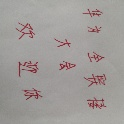 华为全联接
大会
欢迎你